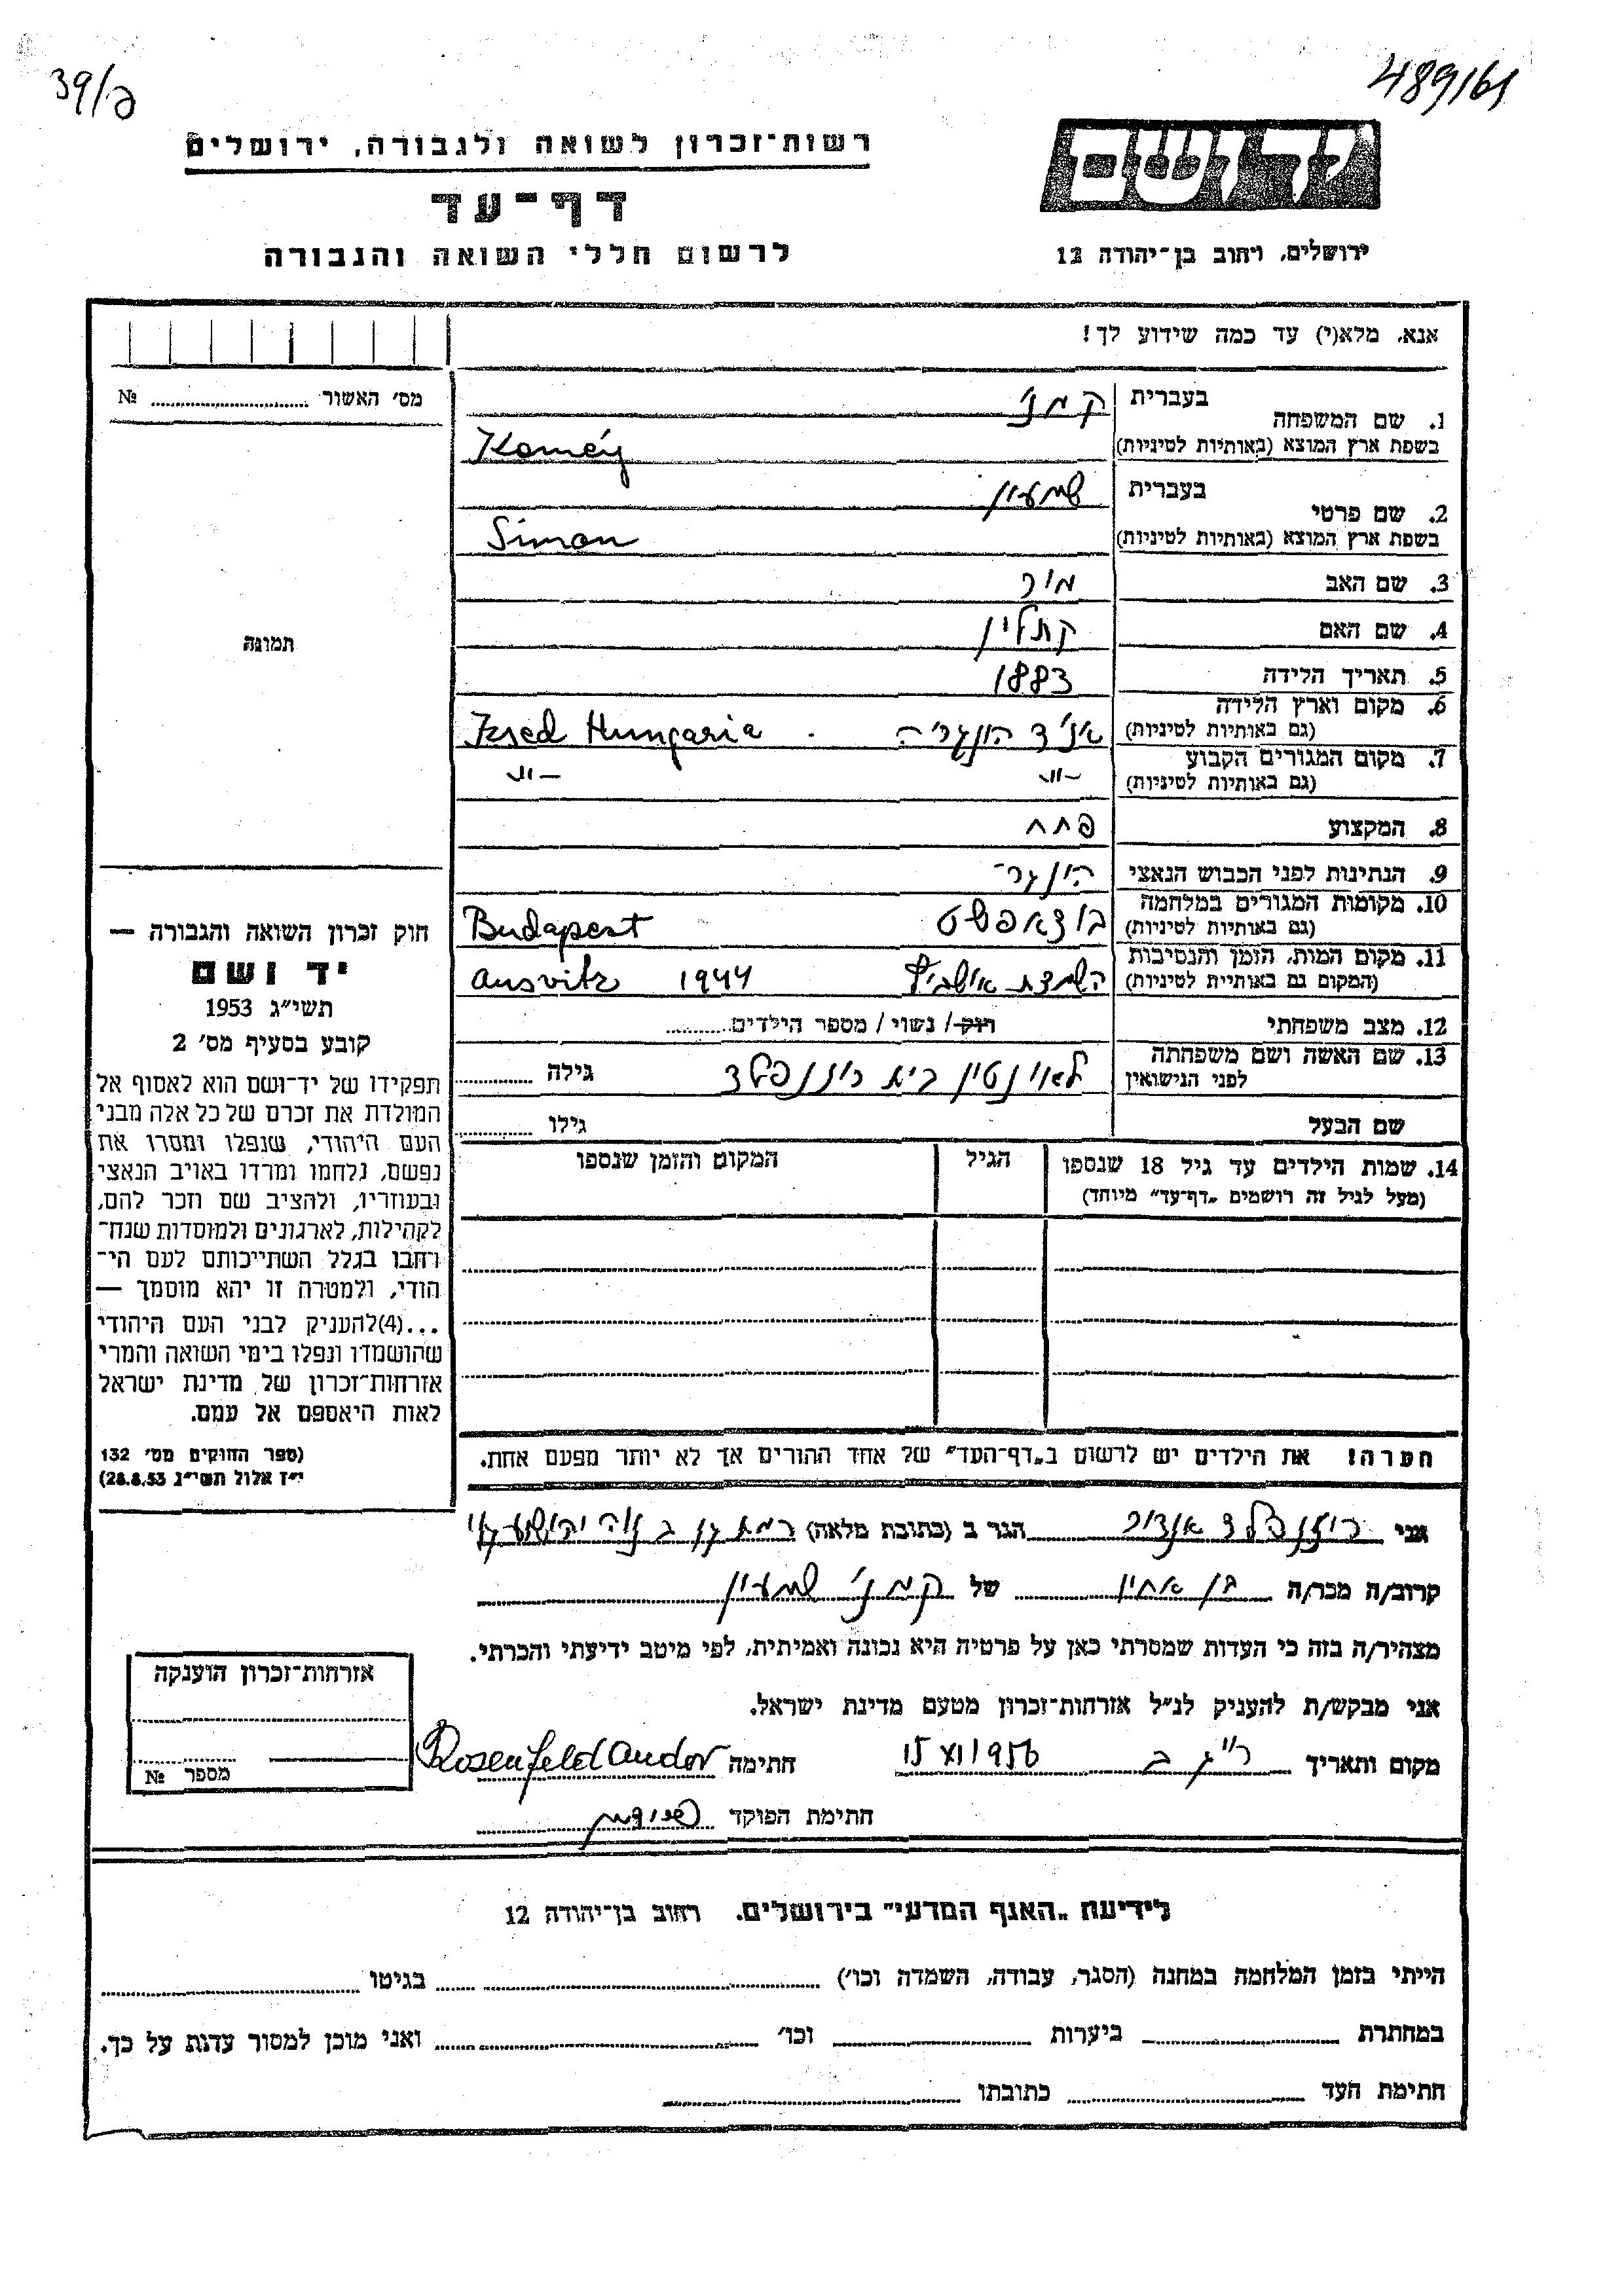 39/ב
489/61
רשות־זכרון לשואה ולגבורה, ירושלים
דף־עד
לרשום חללי השואה והגבורה
ידושם
ירושלים, רחוב בן־יהודה 12
אנא, מלא(י) עד כמה שידוע לך!
מס׳ האשור № 
1. שם המשפחה
בעברית קמני
בשפת ארץ המוצא (באותיות לטיניות) Keméy
2. שם פרטי
בעברית שמעון
בשפת ארץ המוצא (באותיות לטיניות) Simon
3. שם האב מור
4. שם האם קתלין
5. תאריך הלידה 1883
6. מקום וארץ הלידה
(גם באותיות לטיניות) הונגריה Hungaria
7. מקום המגורים הקבוע
(גם באותיות לטיניות) -״- -״-
8. המקצוע פחח
9. הנתינות לפני הכבוש הנאצי הונגר־
10. מקומות המגורים במלחמה
(גם באותיות לטיניות) בודאפשט Budapest
11. מקום המות, הזמן והנסיבות
(המקום גם באותיות לטיניות) השמדת אושביץ 1944 Ausvitz
12. מצב משפחתי רוק / נשוי / מספר הילדים
13. שם האשה ושם משפחתה
לפני הנישואין לאונטין בית רוזנפלד גילה
שם הבעל גילו
14. שמות הילדים עד גיל 18 שנספו הגיל המקום והזמן שנספו
(מעל לגיל זה רושמים „דף־עד״ מיוחד)
הערה! את הילדים יש לרשום ב„דף־העד״ של אחד ההורים אך לא יותר מפעם אחת.
תמונה
חוק זכרון השואה והגבורה —
יד ושם
תשי״ג 1953
קובע בסעיף מס׳ 2
תפקידו של יד־ושם הוא לאסוף אל
המולדת את זכרם של כל אלה מבני
העם היהודי, שנפלו ומסרו את
נפשם, נלחמו ומרדו באויב הנאצי
ובעוזריו, ולהציב שם וזכר להם,
לקהילות, לארגונים ולמוסדות שנח־
רחבו בגלל השתייכותם לעם הי־
הודי, ולמטרה זו יהא מוסמך —
...(4)להעניק לבני העם היהודי
שהושמדו ונפלו בימי השואה והמרי
אזרחות־זכרון של מדינת ישראל
לאות היאספם אל עמם.
(ספר החוקים מס׳ 132
י״ז אלול תשי״ג 28.8.53)
אני רוזנפלד אנדור הגר ב (כתובת מלאה) רמת גן
קרוב/ה מכר/ה בן אחין של קמני שמעון
מצהיר/ה בזה כי העדות שמסרתי כאן על פרטיה היא נכונה ואמיתית, לפי מיטב ידיעתי והכרתי.
אני מבקש/ת להעניק לנ״ל אזרחות־זכרון מטעם מדינת ישראל.
מקום ותאריך ר״ג ב 15 XI 1956 חתימה Rosenfeld Andor
חתימת הפוקד
אזרחות־זכרון הוענקה
מספר №
לידיעת „האגף המדעי״ בירושלים. רחוב בן־יהודה 12
הייתי בזמן המלחמה במחנה (הסגר, עבודה, השמדה וכו׳) בגיטו
במחתרת ביערות וכו׳ ואני מוכן למסור עדות על כך.
חתימת העד כתובתו